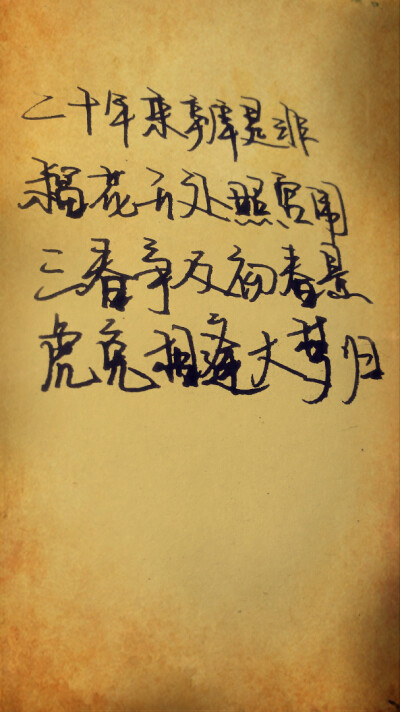 二十年来辨是非
榴花开处照宫闱
三春争及初春景
虎兕相逢大梦归